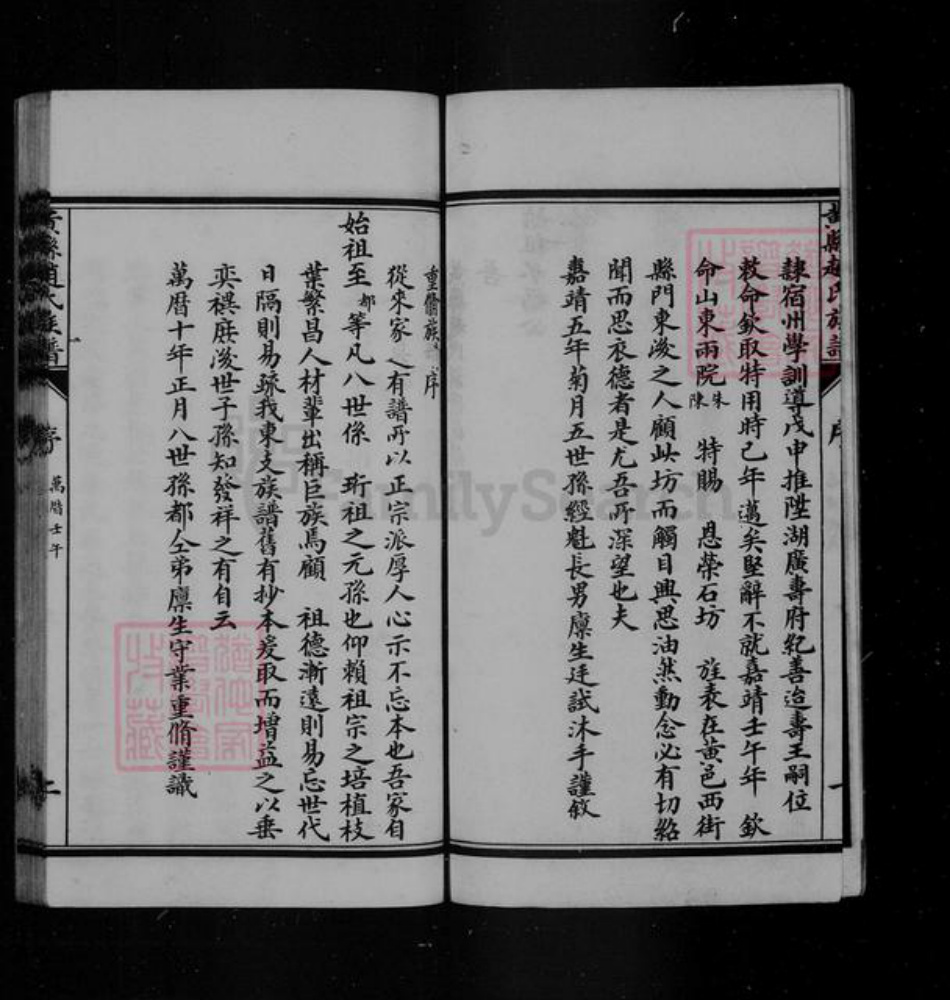 黃縣趙氏族譜
序
一
隸宿州學訓導戊申推陞湖廣壽府紀善迨壽王嗣位
敕命欽取特用時已年邁矣堅辭不就嘉靖壬午年 欽
命山東兩院朱陳 特賜 恩榮石坊 旌表在黃邑西街
縣門東後之人顧此坊而觸目興思油然動念必有切紹
聞而思衣德者是尤吾所深望也夫
嘉靖五年菊月五世孫經魁長男廩生廷試沐手謹敘
重脩族譜序
從來家之有譜所以正宗派厚人心示不忘本也吾家自
始祖至都等凡八世係 珩祖之元孫也仰賴祖宗之培植枝
葉繁昌人材輩出稱巨族焉顧 祖德漸遠則易忘世代
日隔則易疏我東支族譜舊有抄本爰取而增益之以垂
奕禩庶後世子孫知發祥之有自云
萬曆十年正月八世孫都仝弟廩生守業重脩謹識
黃縣趙氏族譜
序
萬曆壬午
二
FamilySearch